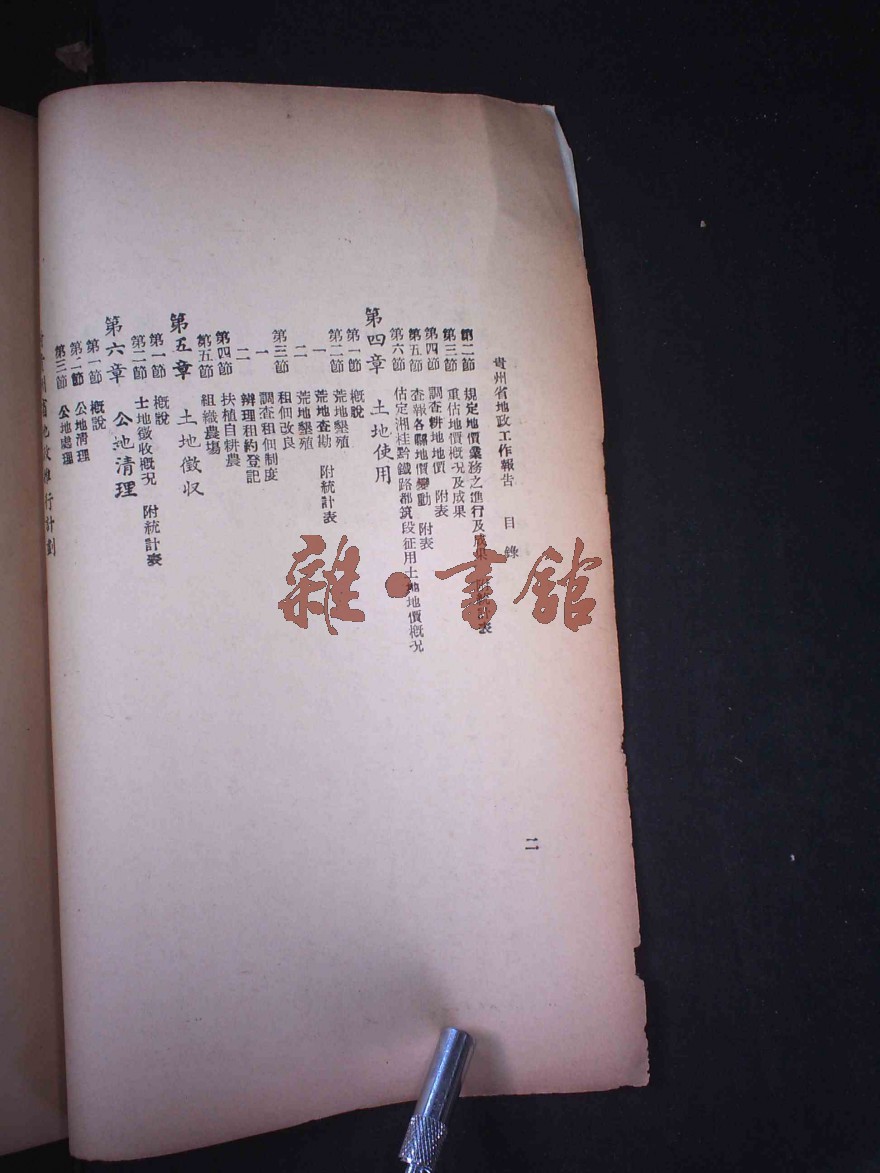 貴州省地政工作報告 目錄
二
第二節 規定地價業務之進行及成果 附統計表
第三節 重估地價概況及成果
第四節 調查耕地地價 附表
第五節 查報各縣地價變動 附表
第六節 估定湘桂黔鐵路都筑段征用土地地價概況
第四章 土地使用
第一節 概說
第二節 荒地墾殖
一 荒地查勘 附統計表
二 荒地墾殖
第三節 租佃改良
一 調查租佃制度
二 辦理租約登記
第四節 扶植自耕農
第五節 組織農場
第五章 土地徵収
第一節 概說
第二節 土地徵收概况 附統計表
第六章 公地清理
第一節 概說
第二節 公地清理
第三節 公地處理
省地政推行計劃
雜·書館